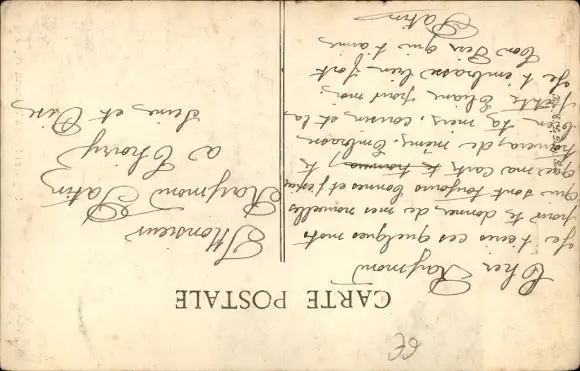 CARTE POSTALE
Cher Raymond
Je t'envoie ces quelques mots
pour te donner de mes nouvelles
qui sont toujours bonnes et j'espère
que ma carte te
trouvera de même. Embrasse
bien ta mère, cousin et la
petite Eliane pour moi.
Je t'embrasse bien fort
Ton qui t'aime
Patin
Monsieur
Raymond Patin
a Thoiry
Seine et Oise
6E